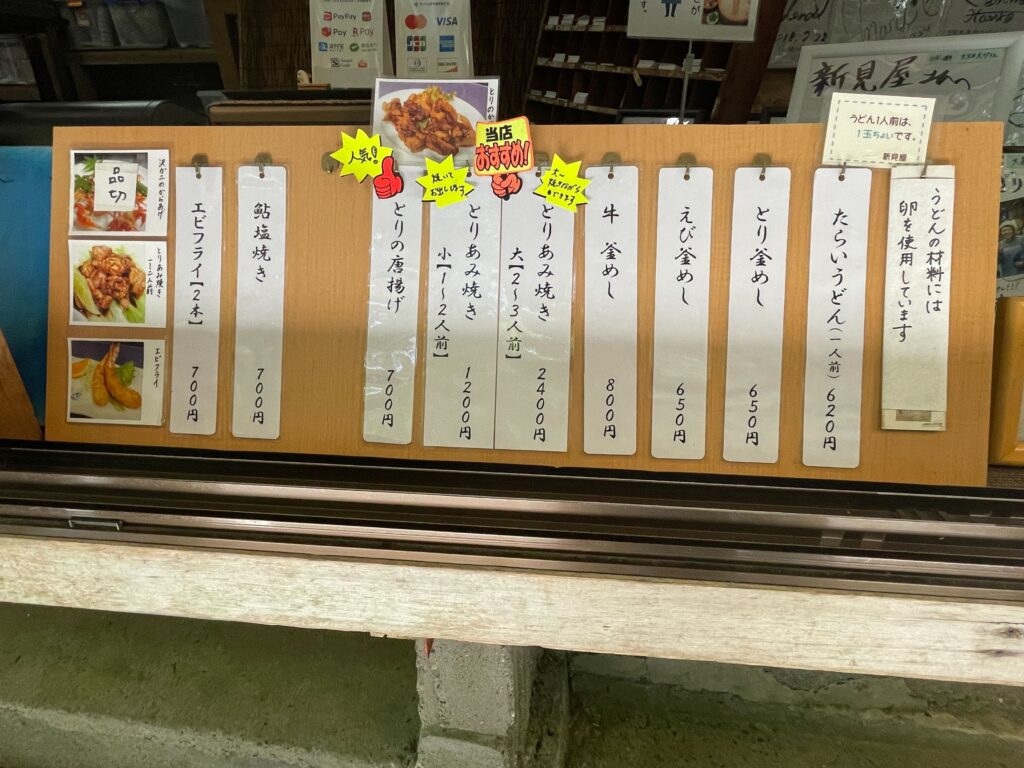 PayPay
Pay
R Pay
VISA
JCB
新見屋さんへ
うどん1人前は、
1玉ちょいです。
新見屋
うどんの材料には
卵を使用しています
たらいうどん(一人前) 620円
とり釜めし 650円
えび釜めし 650円
牛釜めし 800円
当店
おすすめ!
とりあみ焼き
大【2~3人前】 2400円
焼いて
お出しします
とりあみ焼き
小【1~2人前】 1200円
人気!
とりの唐揚げ 700円
鮎塩焼き 700円
エビフライ【2本】 700円
沢ガニのからあげ
品切
とりあみ焼き
1~2人前
エビフライ